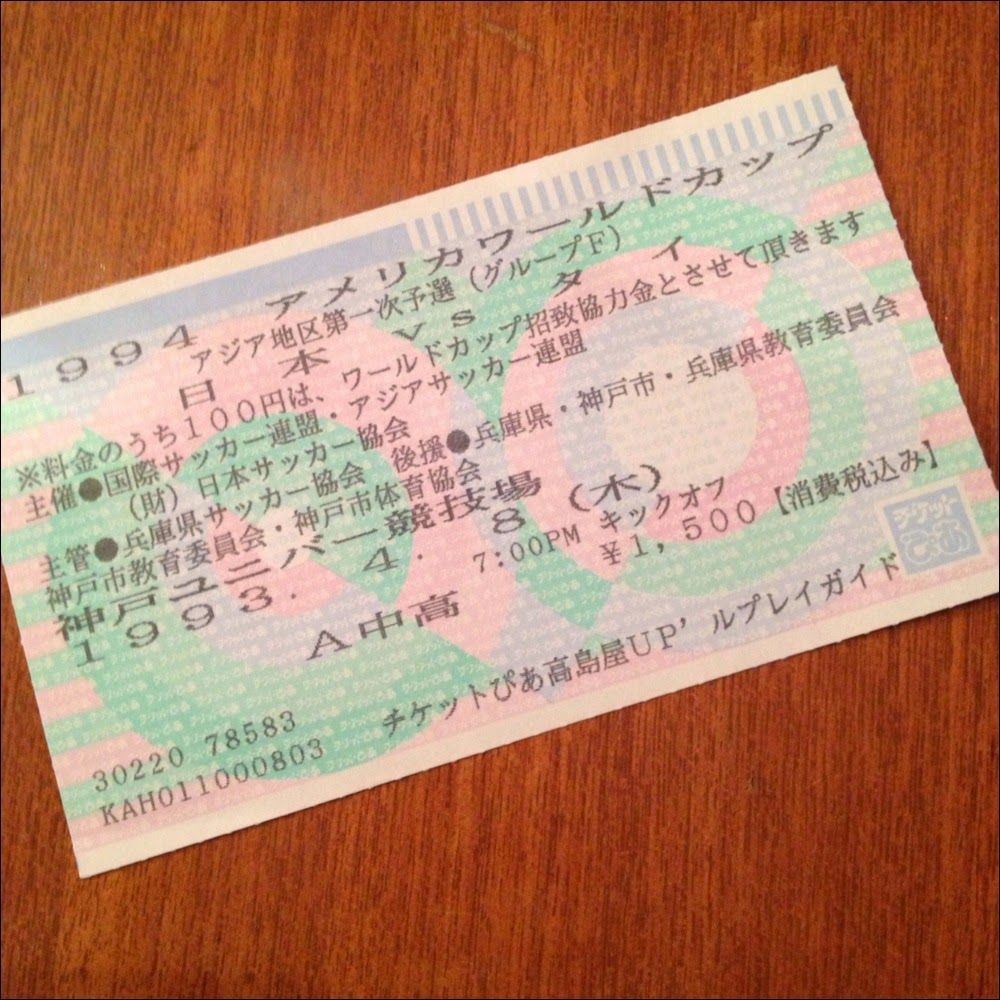 1994 アメリカワールドカップ
アジア地区第一次予選(グループF)
日本 vs タイ
※料金のうち100円は、ワールドカップ招致協力金とさせて頂きます
主催●国際サッカー連盟・アジアサッカー連盟
(財)日本サッカー協会
主管●兵庫県サッカー協会 後援●兵庫県・神戸市・兵庫県教育委員会
神戸市教育委員会・神戸市体育協会
神戸ユニバー競技場
1993. 4. 8(木)
7:00PM キックオフ
¥1,500【消費税込み】
A中高
チケットぴあ
30220 78583
KAH011000803 チケットぴあ高島屋UP'ルプレイガイド